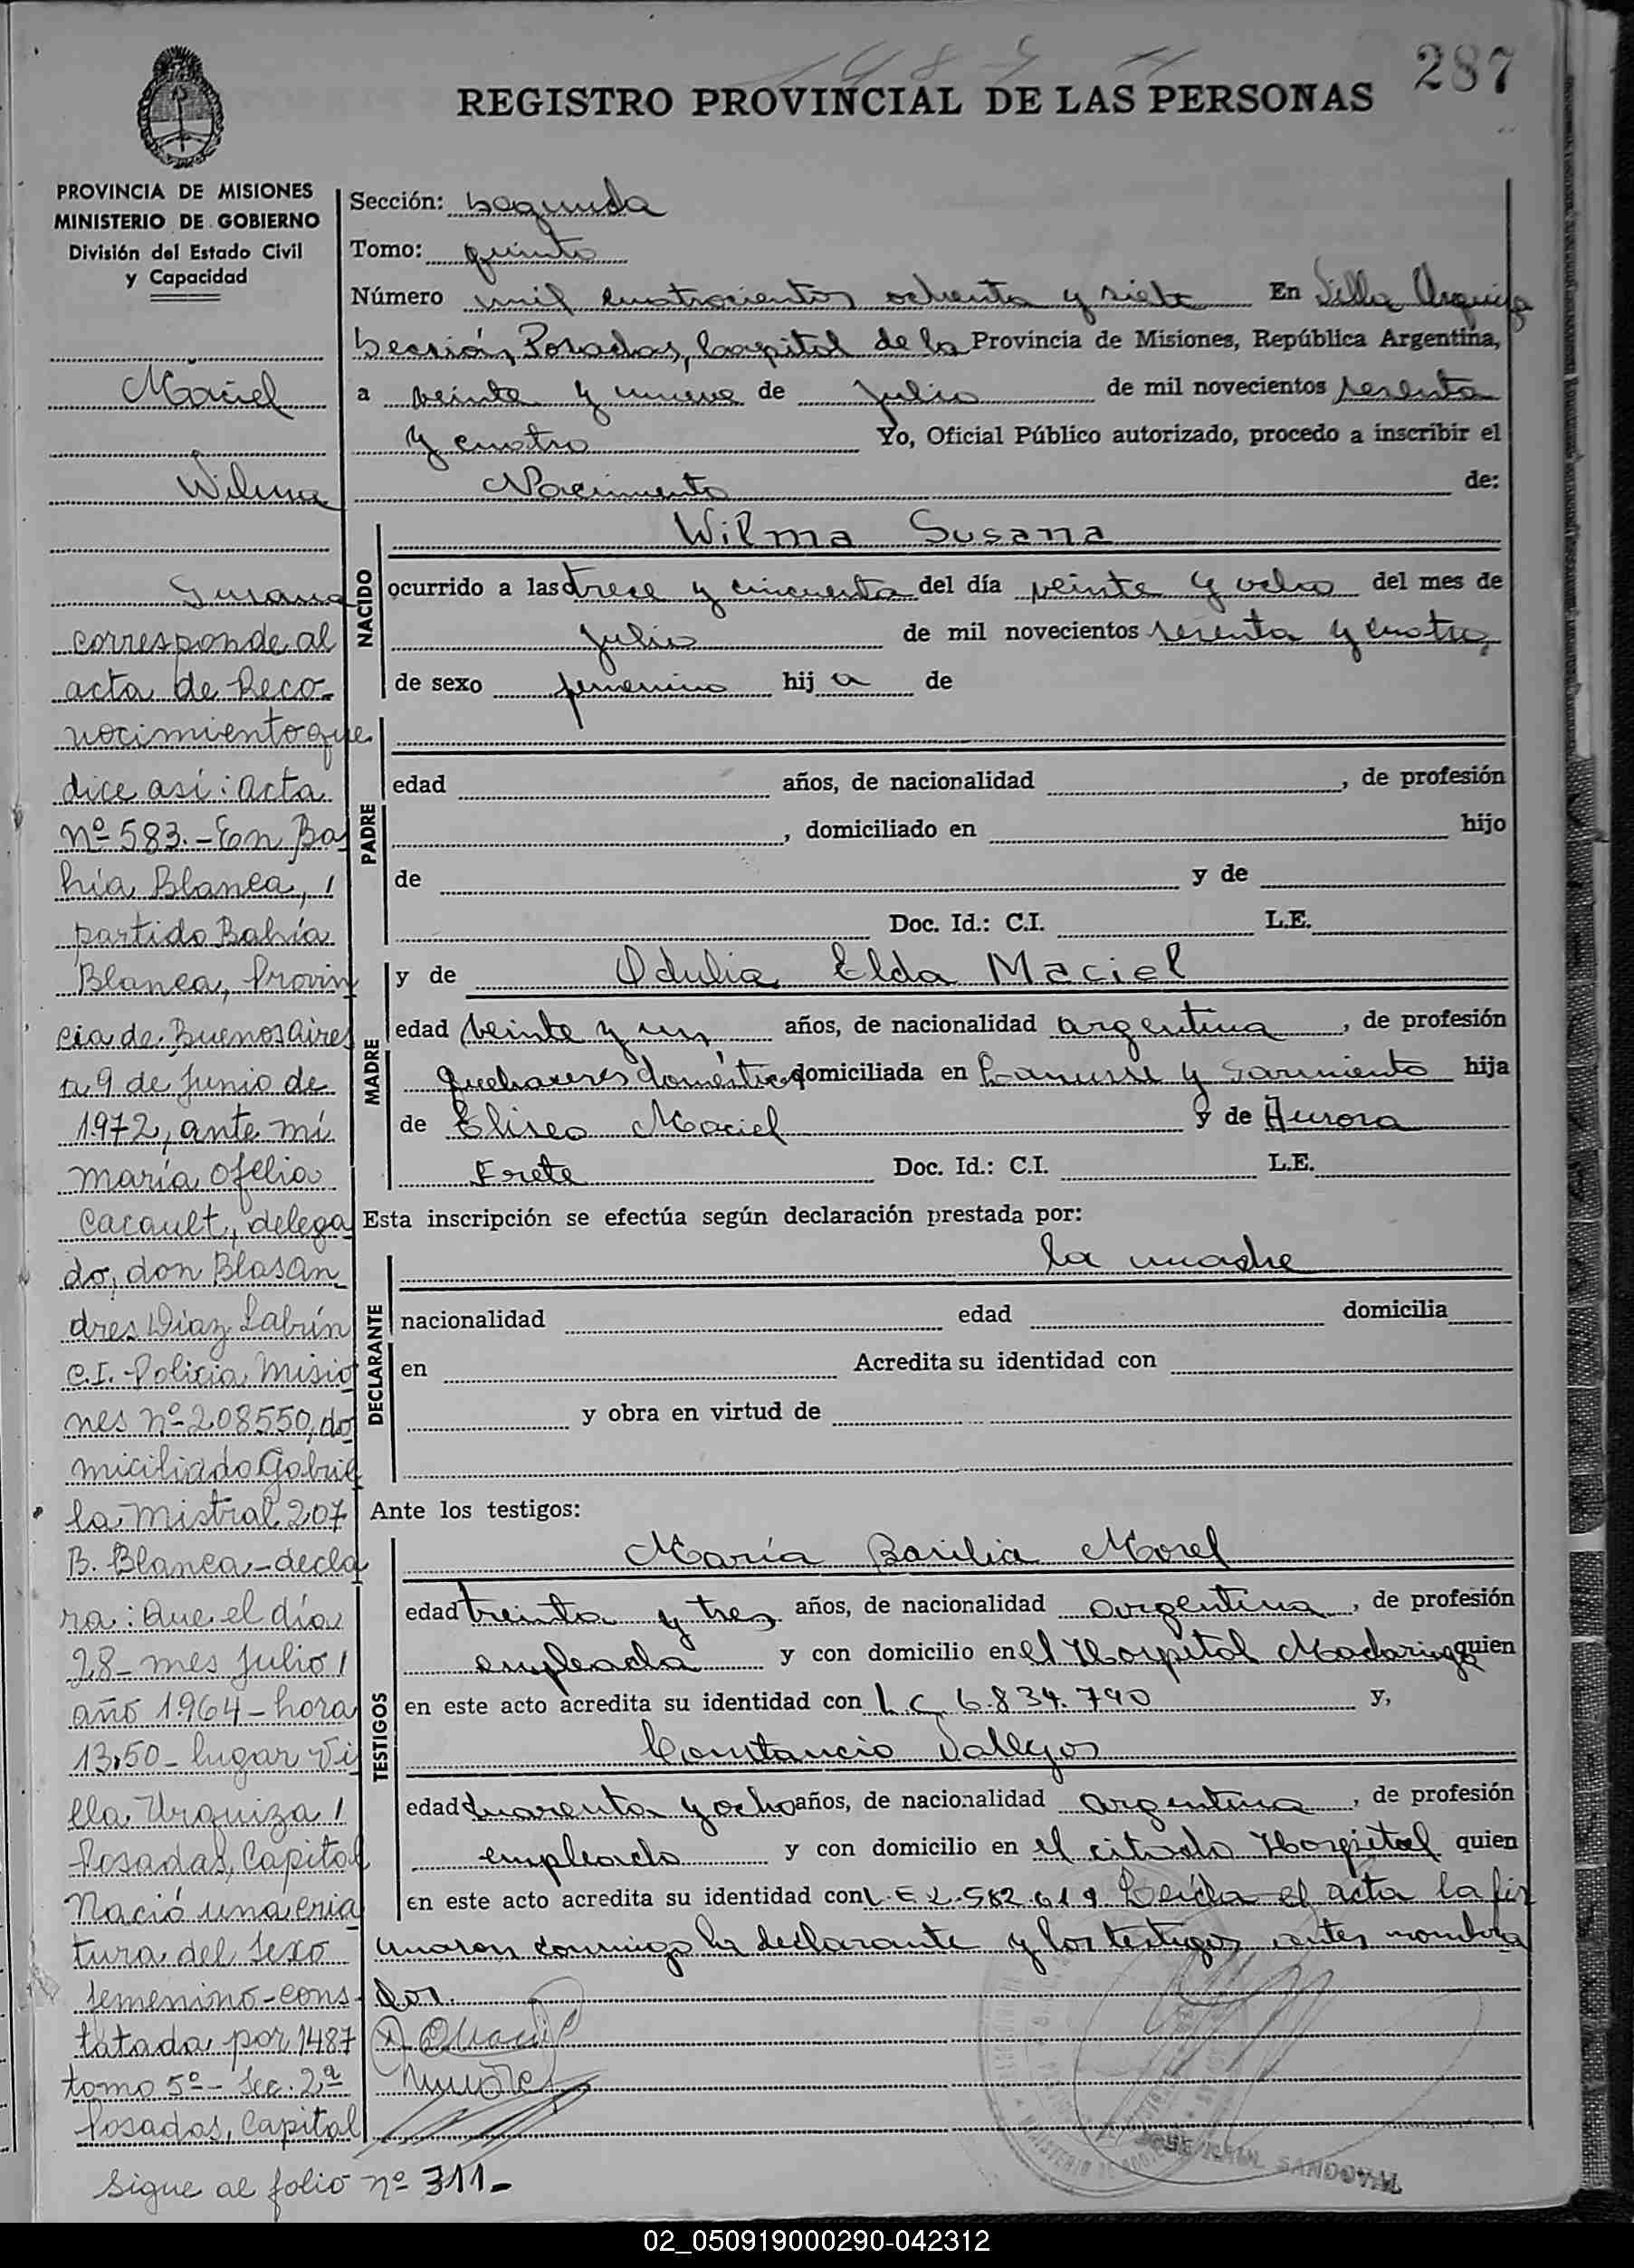 287
REGISTRO PROVINCIAL DE LAS PERSONAS
PROVINCIA DE MISIONES
MINISTERIO DE GOBIERNO
División del Estado Civil
y Capacidad
Maciel
Wilma
Susana
corresponde al
acta de Reco-
nocimiento que
dice así: Acta
Nº 583.- En Ba
hía Blanca, /
partido Bahía
Blanca, Provin
cia de Buenos Aires
a 9 de Junio de
1972, ante mí
María Ofelia
Cacault, delega
do, don Blas An
dres Diaz Labrín
C.I. Policia Misio
nes nº 208550, do
miciliado Gabrie
la Mistral 207
B. Blanca - decla
ra: Que el día
28 - mes Julio /
año 1964 - hora
13,50 - lugar Vi
lla Urquiza /
Posadas, Capital
Nació una cria
tura del sexo
femenino - cons
tatada por 1487
tomo 5º - Sec. 2ª
Posadas, Capital
Sigue al folio nº 311-
Sección: Segunda
Tomo: quinto
Número mil cuatrocientos ochenta y siete En Villa Urquiza
Sección, Posadas, Capital de la Provincia de Misiones, República Argentina,
a veinte y nueve de julio de mil novecientos sesenta
y cuatro Yo, Oficial Público autorizado, procedo a inscribir el
Nacimiento de:
NACIDO
Wilma Susana
ocurrido a las trece y cincuenta del día veinte y ocho del mes de
julio de mil novecientos sesenta y cuatro,
de sexo femenino hij a de
PADRE
edad años, de nacionalidad , de profesión
, domiciliado en hijo
de y de
Doc. Id.: C.I. L.E.
MADRE
y de Odulia Elda Maciel
edad veinte y un años, de nacionalidad argentina , de profesión
quehaceres domésticos domiciliada en Lanusse y Sarmiento hija
de Eliseo Maciel y de Aurora
Frete Doc. Id.: C.I. L.E.
Esta inscripción se efectúa según declaración prestada por:
DECLARANTE
la madre
nacionalidad edad domicilia
en Acredita su identidad con
y obra en virtud de
Ante los testigos:
TESTIGOS
María Basilia Morel
edad treinta y tres años, de nacionalidad argentina , de profesión
empleada y con domicilio en el Hospital Madariaga quien
en este acto acredita su identidad con L.C. 6.834.790 y,
Constancio Vallejos
edad cuarenta y ocho años, de nacionalidad argentina , de profesión
empleado y con domicilio en el citado Hospital quien
en este acto acredita su identidad con L.E 2.582.619 Leída el acta la fir
maron conmigo la declarante y los testigos antes nombra
dos.
JOSE RAUL SANDOVAL
02_050919000290-042312